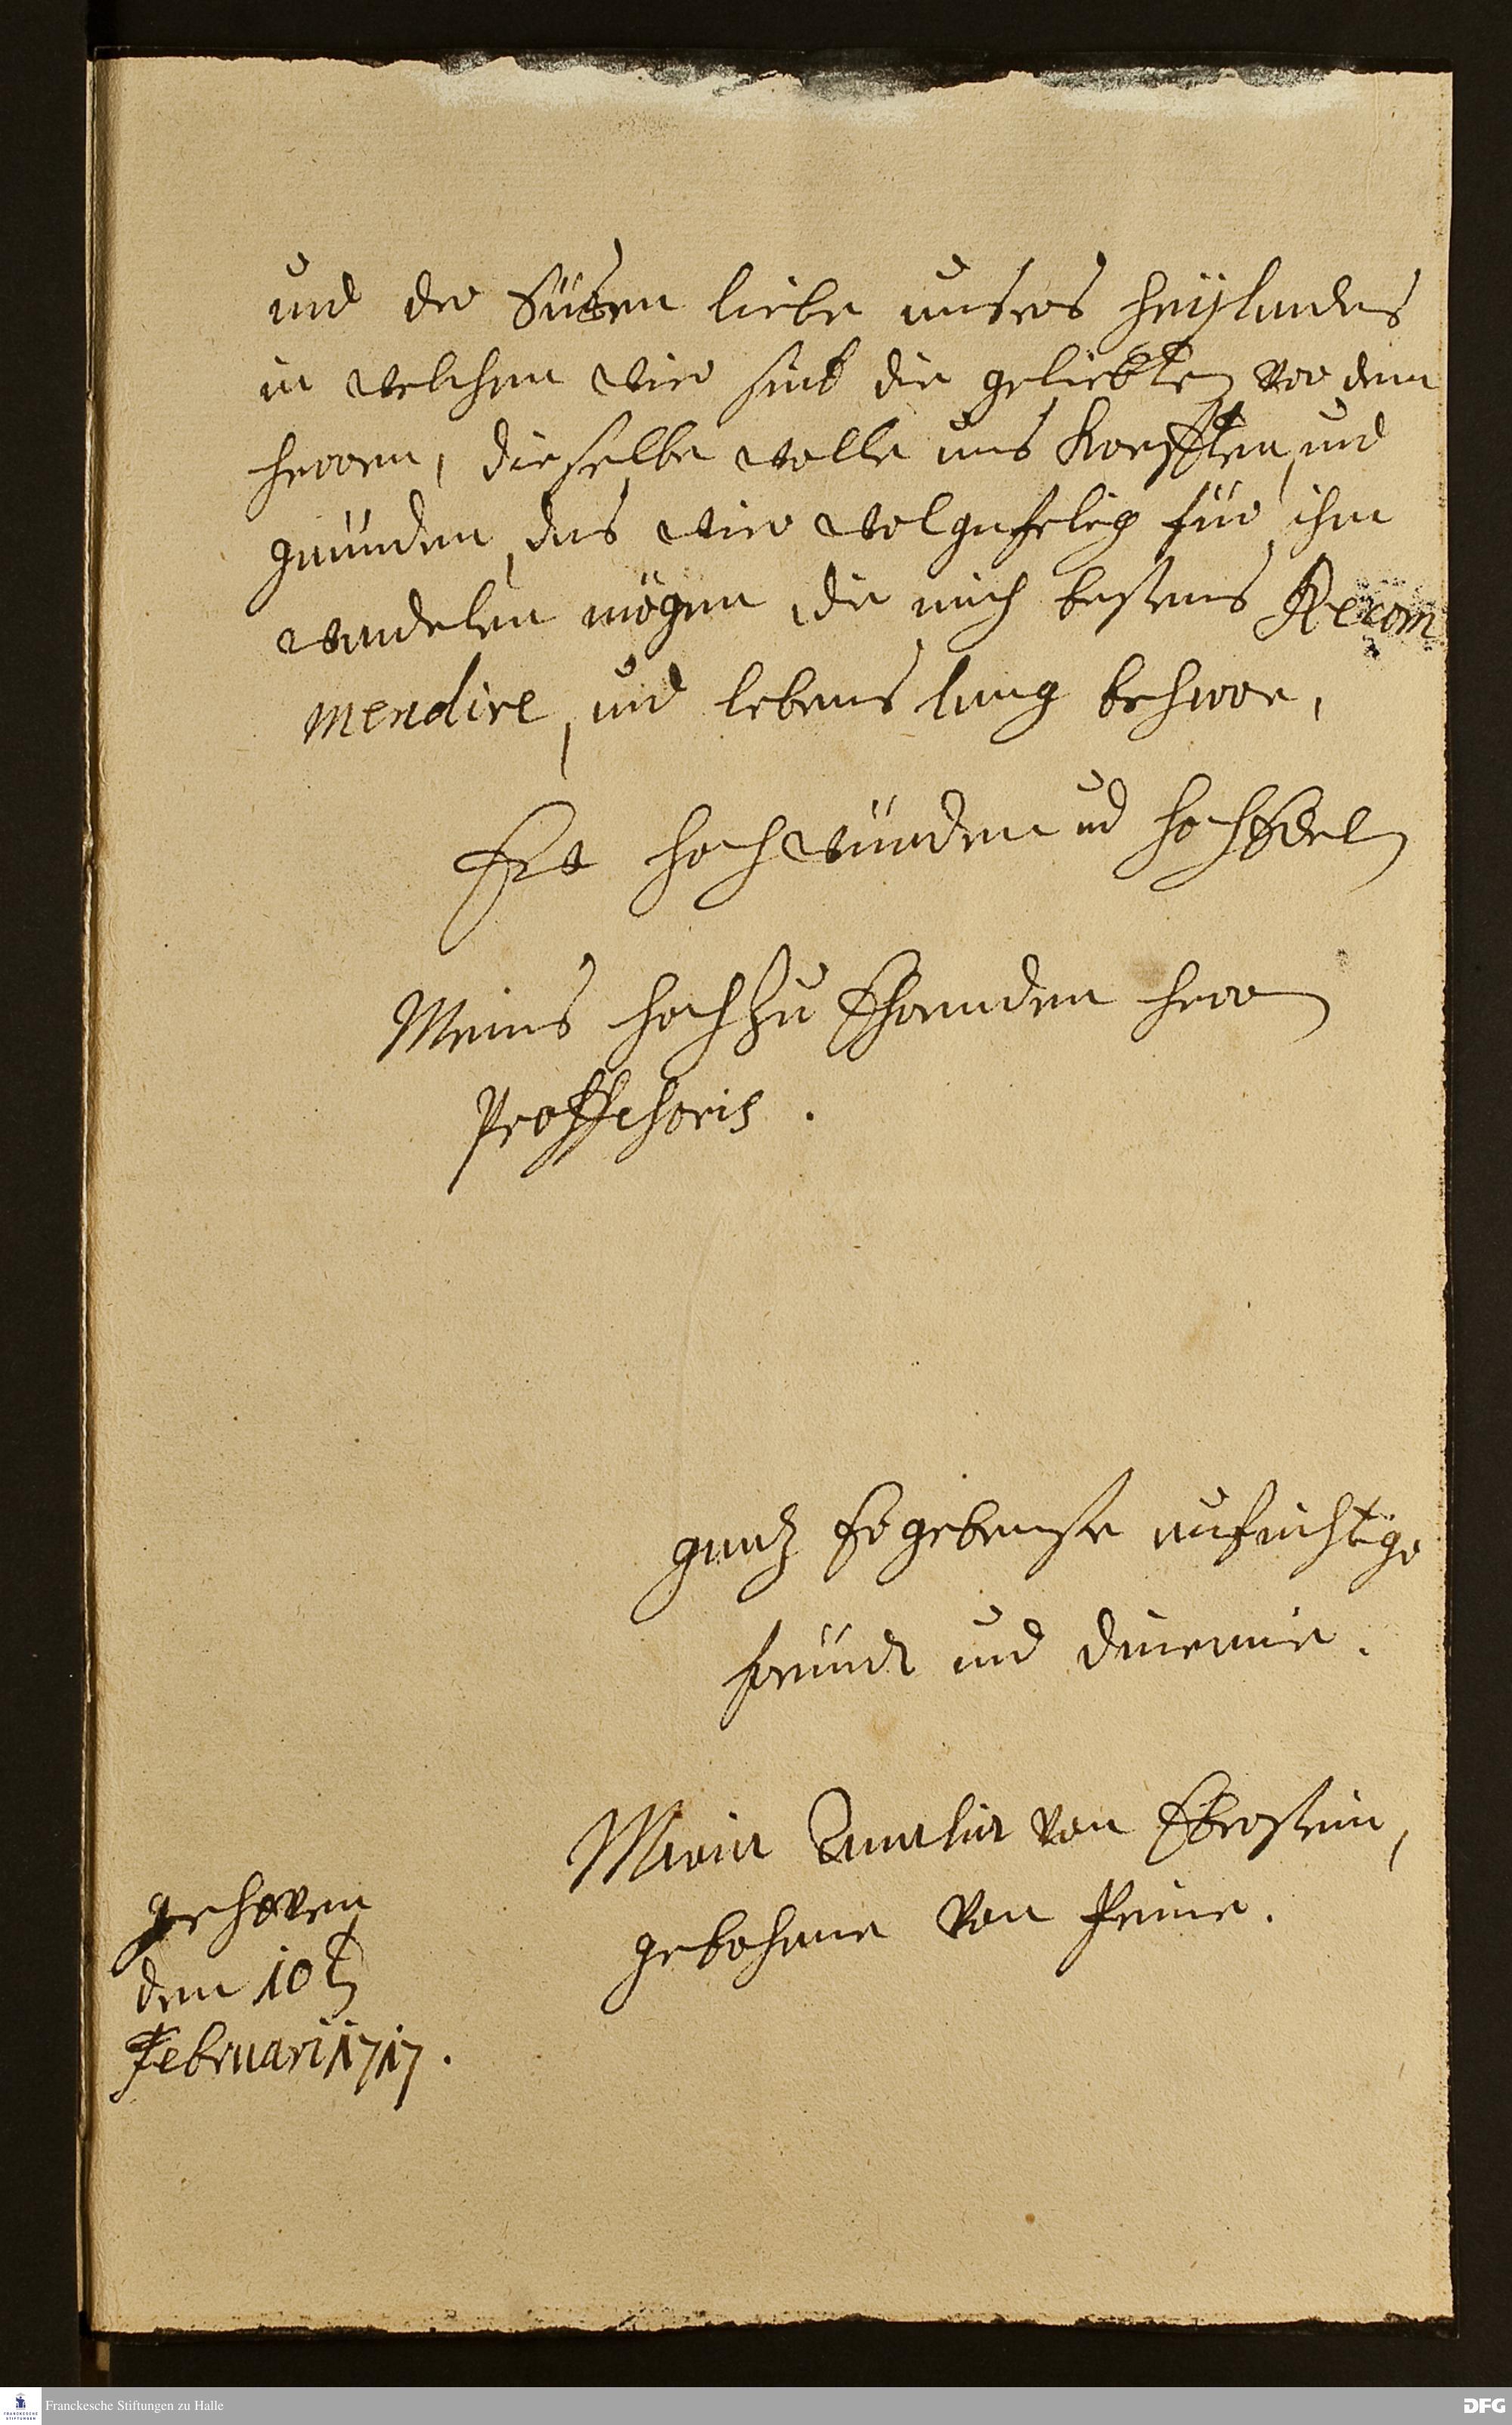 und der Süsen liebe unsers heÿlandes
in welchem wir sint die geliebten vor dem
herren, dieselbe wolle uns krefften und
gründen, das wir wolgefelig für ihm
wandelen mögen die mich bestens Recom
mendire, und lebens lang beharre,
Ew hochwürden ud hochEdel
Meins hochzu Ehrenden herrn
Proffesoris.
gantz Ergebenste aufrichtige
freundt und dinerinn.
Maria Amelia von Eberstein,
gebohrne von Peine.
gehoven
den 10 t
Februarii 1717.
Franckesche Stiftungen zu Halle
DFG